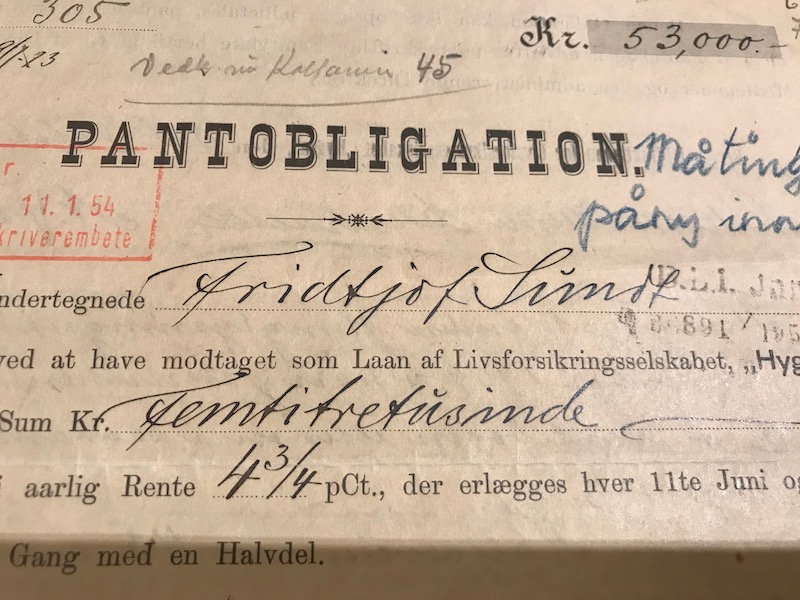 305
Kr. 53,000.-
45
PANTOBLIGATION.
Måting
påny inn
r
11.1.54
kriverembete
ndertegnede Fridtjof Sundt
ved at have modtaget som Laan af Livsforsikringsselskabet, „Hyg
Sum Kr. Femtitretusinde
i aarlig Rente 4 3/4 pCt., der erlægges hver 11te Juni og
Gang med en Halvdel.